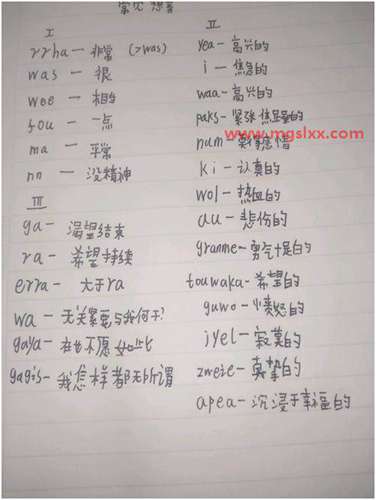 常见
I
rrha — 非常 (>was)
was — 很
wee — 相当
fou — 一点
ma — 平常
nn — 没精神
III
ga — 渴望结束
ra — 希望持续
erra — 大于ra
wa — 无关紧要与我何干?
gaya — 在也不愿如此
gagis — 我怎样都无所谓
II
yea — 高兴的
i — 焦急的
waa — 高兴的
paks — 紧张焦虑的
num —
www.mgslxx.com
ki — 认真的
wol — 热血的
au — 悲伤的
granme — 勇气十足的
touwaka — 希望的
guwo — 愤怒的
jyel — 寂寞的
zweie — 真挚的
apea — 沉浸于幸福的